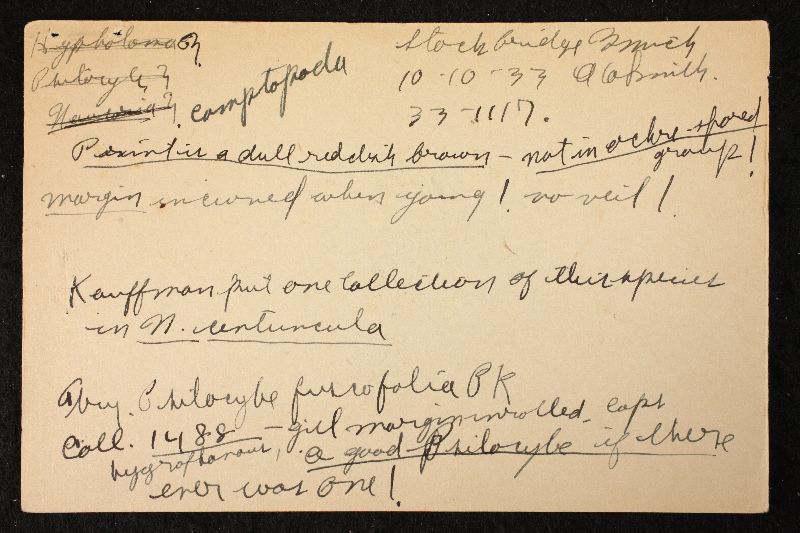 Hypholoma ?
Psilocybe ?
Naucoria ? camptopoda
Stockbridge Mich
10-10-33 AHSmith.
33-1117.
Print is a dull reddish brown - not in ochre-spored
group!
margin incurved when young! no veil!
Kauffman put one collection of this species
in N. centuncula
Psilocybe fuscofolia PK
Coll. 1488 - gill margin inrolled, caps
hygrophanous, a good Psilocybe if there
ever was one!